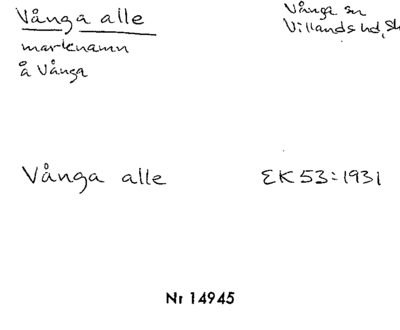 Vånga alle
marknamn
å Vånga
Vånga sn
Villands hd, Sk
Vånga alle EK 53:1931
Nr 14945